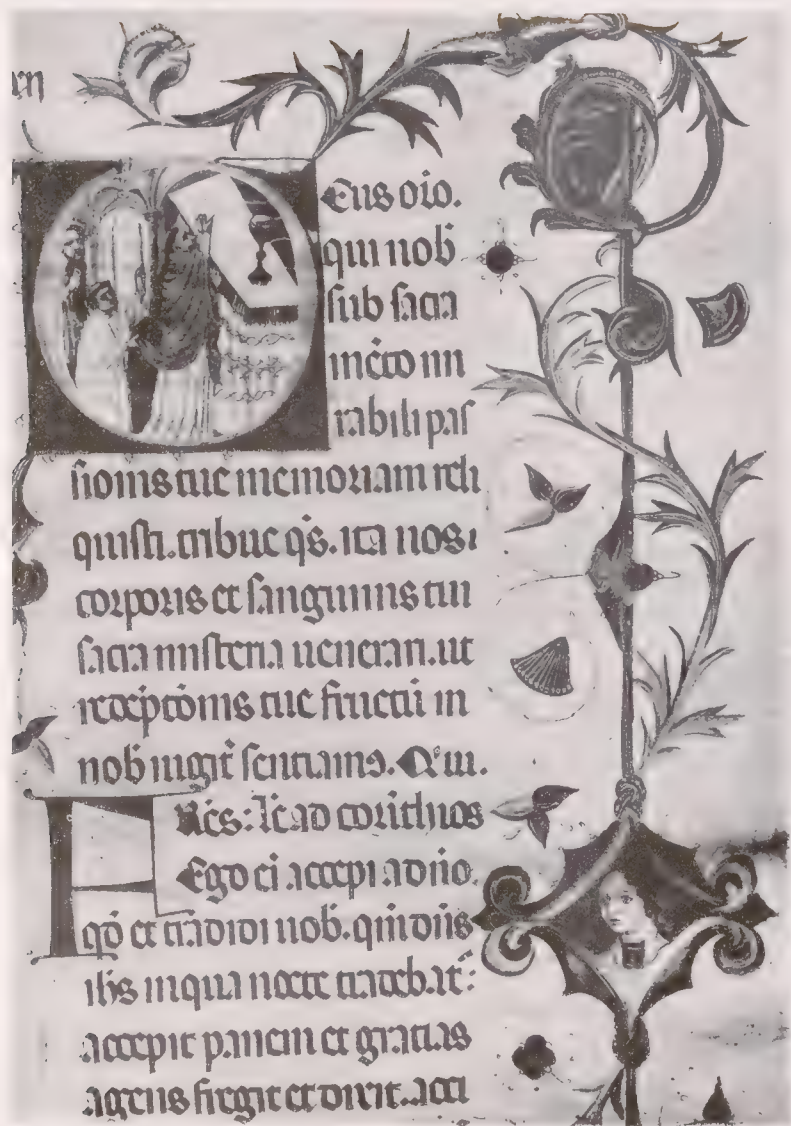 Deus oīo.
qui nob̄
sub sacra
mēto mi
rabili pas
sionis tue memoriam reli
quisti. tribue q̄s. ita nos ı
corporis et sanguinis tui
sacra misteria ueneran. ut
redēptōnis tue fructū in
nob iugit̄ sentiamꝰ. Qui.
Frēs: ad corīthios
Ego ei accepi a dn̄o.
qd̄ et tradidi uob. qm̄ dn̄s
ihs in qua nocte tradebat̄:
accepit panem et gratias
agens fregit et dixit. acci